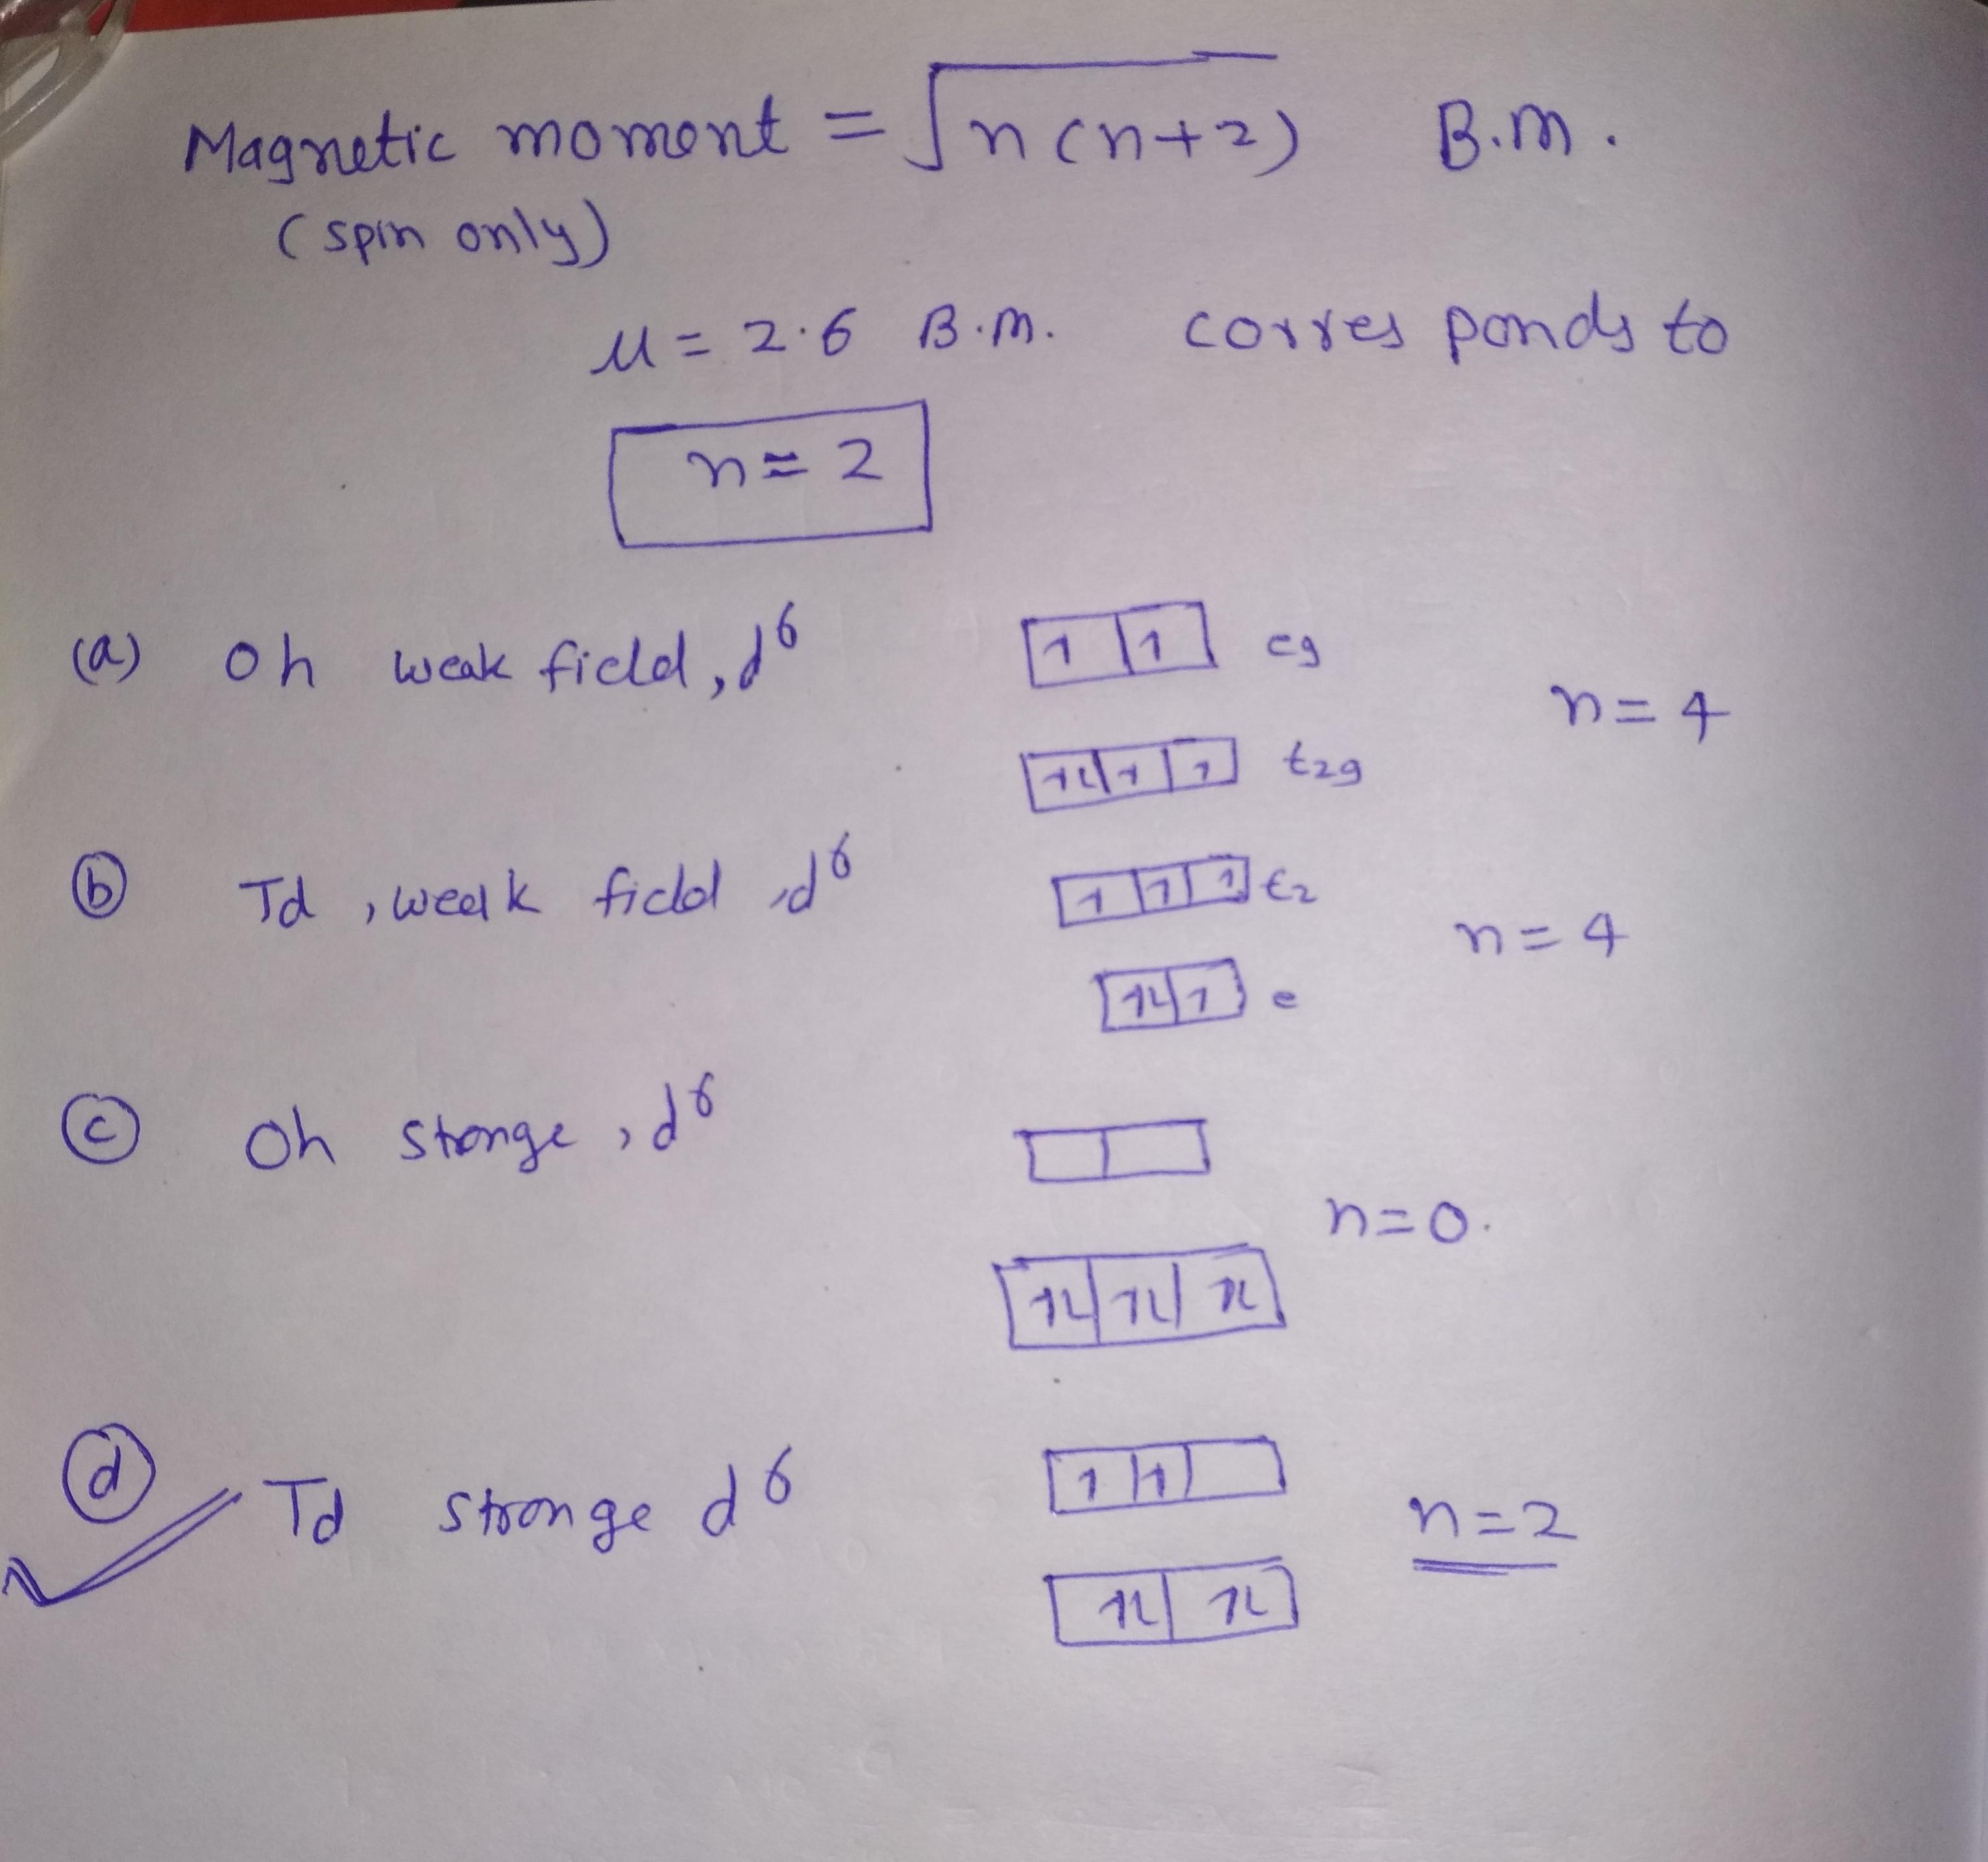 Magnetic moment = √n(n+2) B.M.
(spin only)
μ = 2.6 B.M. corresponds to
n = 2
(a) Oh weak field, d⁶ 1 1 eg
n = 4
1↓ 1 1 t2g
(b) Td, weak field, d⁶ 1 1 1 t2
n = 4
1↓ 1 e
(c) Oh stronge, d⁶
n = 0.
1↓ 1↓ 1↓
(d) Td stronge d⁶ 1 1
n = 2
1↓ 1↓